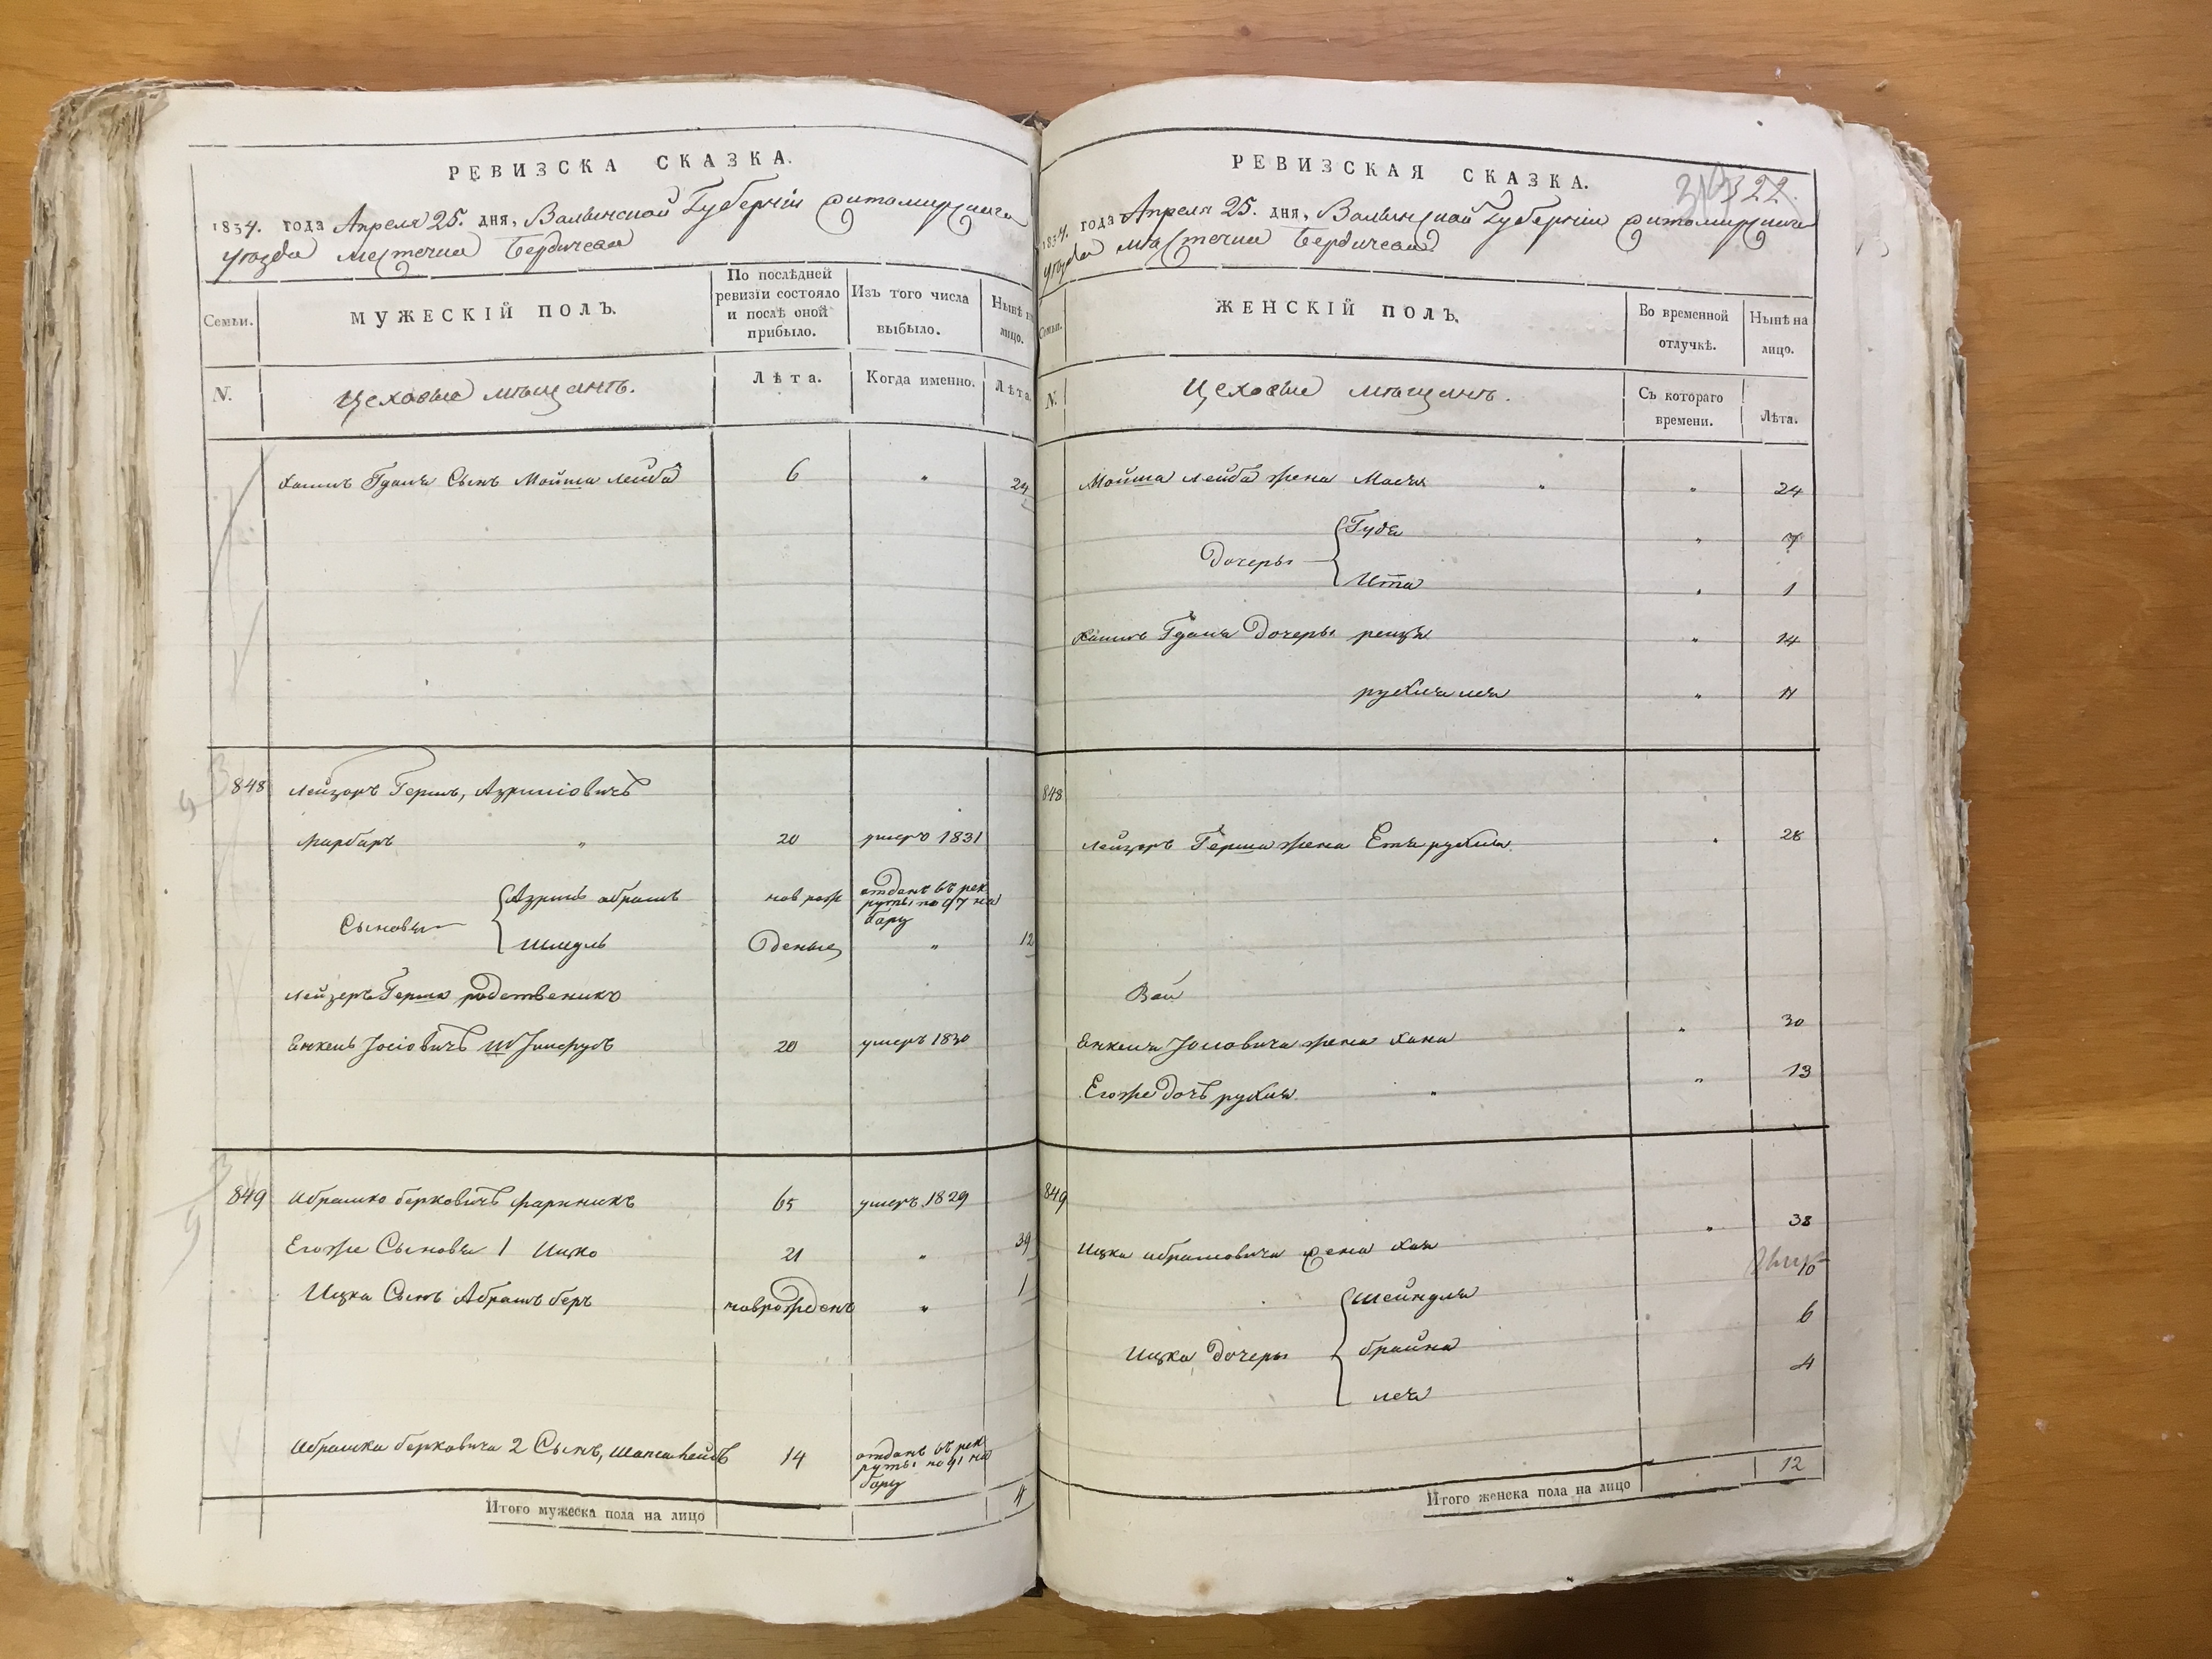 РЕВИЗСКА СКАЗКА.
1834. года Апреля 25. дня, Волынской Губерніи Житомирскаго
уезда местечка Бердичева
Семьи.
МУЖЕСКІЙ ПОЛЪ.
По послѣдней
ревизіи состояло
и послѣ оной
прибыло.
Изъ того числа
выбыло.
Нынѣ на
лицо.
N.
Цеховые мѣщанъ.
Лѣта.
Когда именно.
Лѣта.
Сынъ Мойша Лейба 6 " 24
848 Лейзоръ Герш, Азриліовичъ
20 умеръ 1831
Сыновья
Азриль абрамъ нов рож отданъ въ рек
руты по 97 на
бору
Шмуль Оденъ " 12
Лейзеръ Герша родственикъ
Енкель Іосіовичъ 20 умеръ 1830
849 Абрамко берковичъ 65 умеръ 1829
Егоже Сыновья 1 Ицко 21 " 39
Ицка Сынъ Абрамъ беръ новрожденъ " 1
Абрамка берковича 2 Сынъ, 14 отданъ въ рек
руты по 91 на
бору
Итого мужеска пола на лицо 4
РЕВИЗСКАЯ СКАЗКА.
322.
1834. года Апреля 25. дня, Волынской Губерніи Житомирскаго
уезда местечка Бердичева
Семьи.
ЖЕНСКІЙ ПОЛЪ.
Во временной
отлучкѣ.
Нынѣ на
лицо.
N.
Цеховые мѣщанъ.
Съ котораго
времени.
Лѣта.
Мойша Лейба жена " " 24
Дочеры
Гудя " 7
Ита " 1
Дочеры " 14
рухля лея " 11
848
Лейзоръ Герша жена Етя рухля " 28
Енкеля Іосіовича жена хана " 30
Егоже дочъ рухля " " 13
849
Ицка абрамовича жена хая " 38
Ицка Дочеры
шейндля 10
брайна 6
лея 4
Итого женска пола на лицо 12